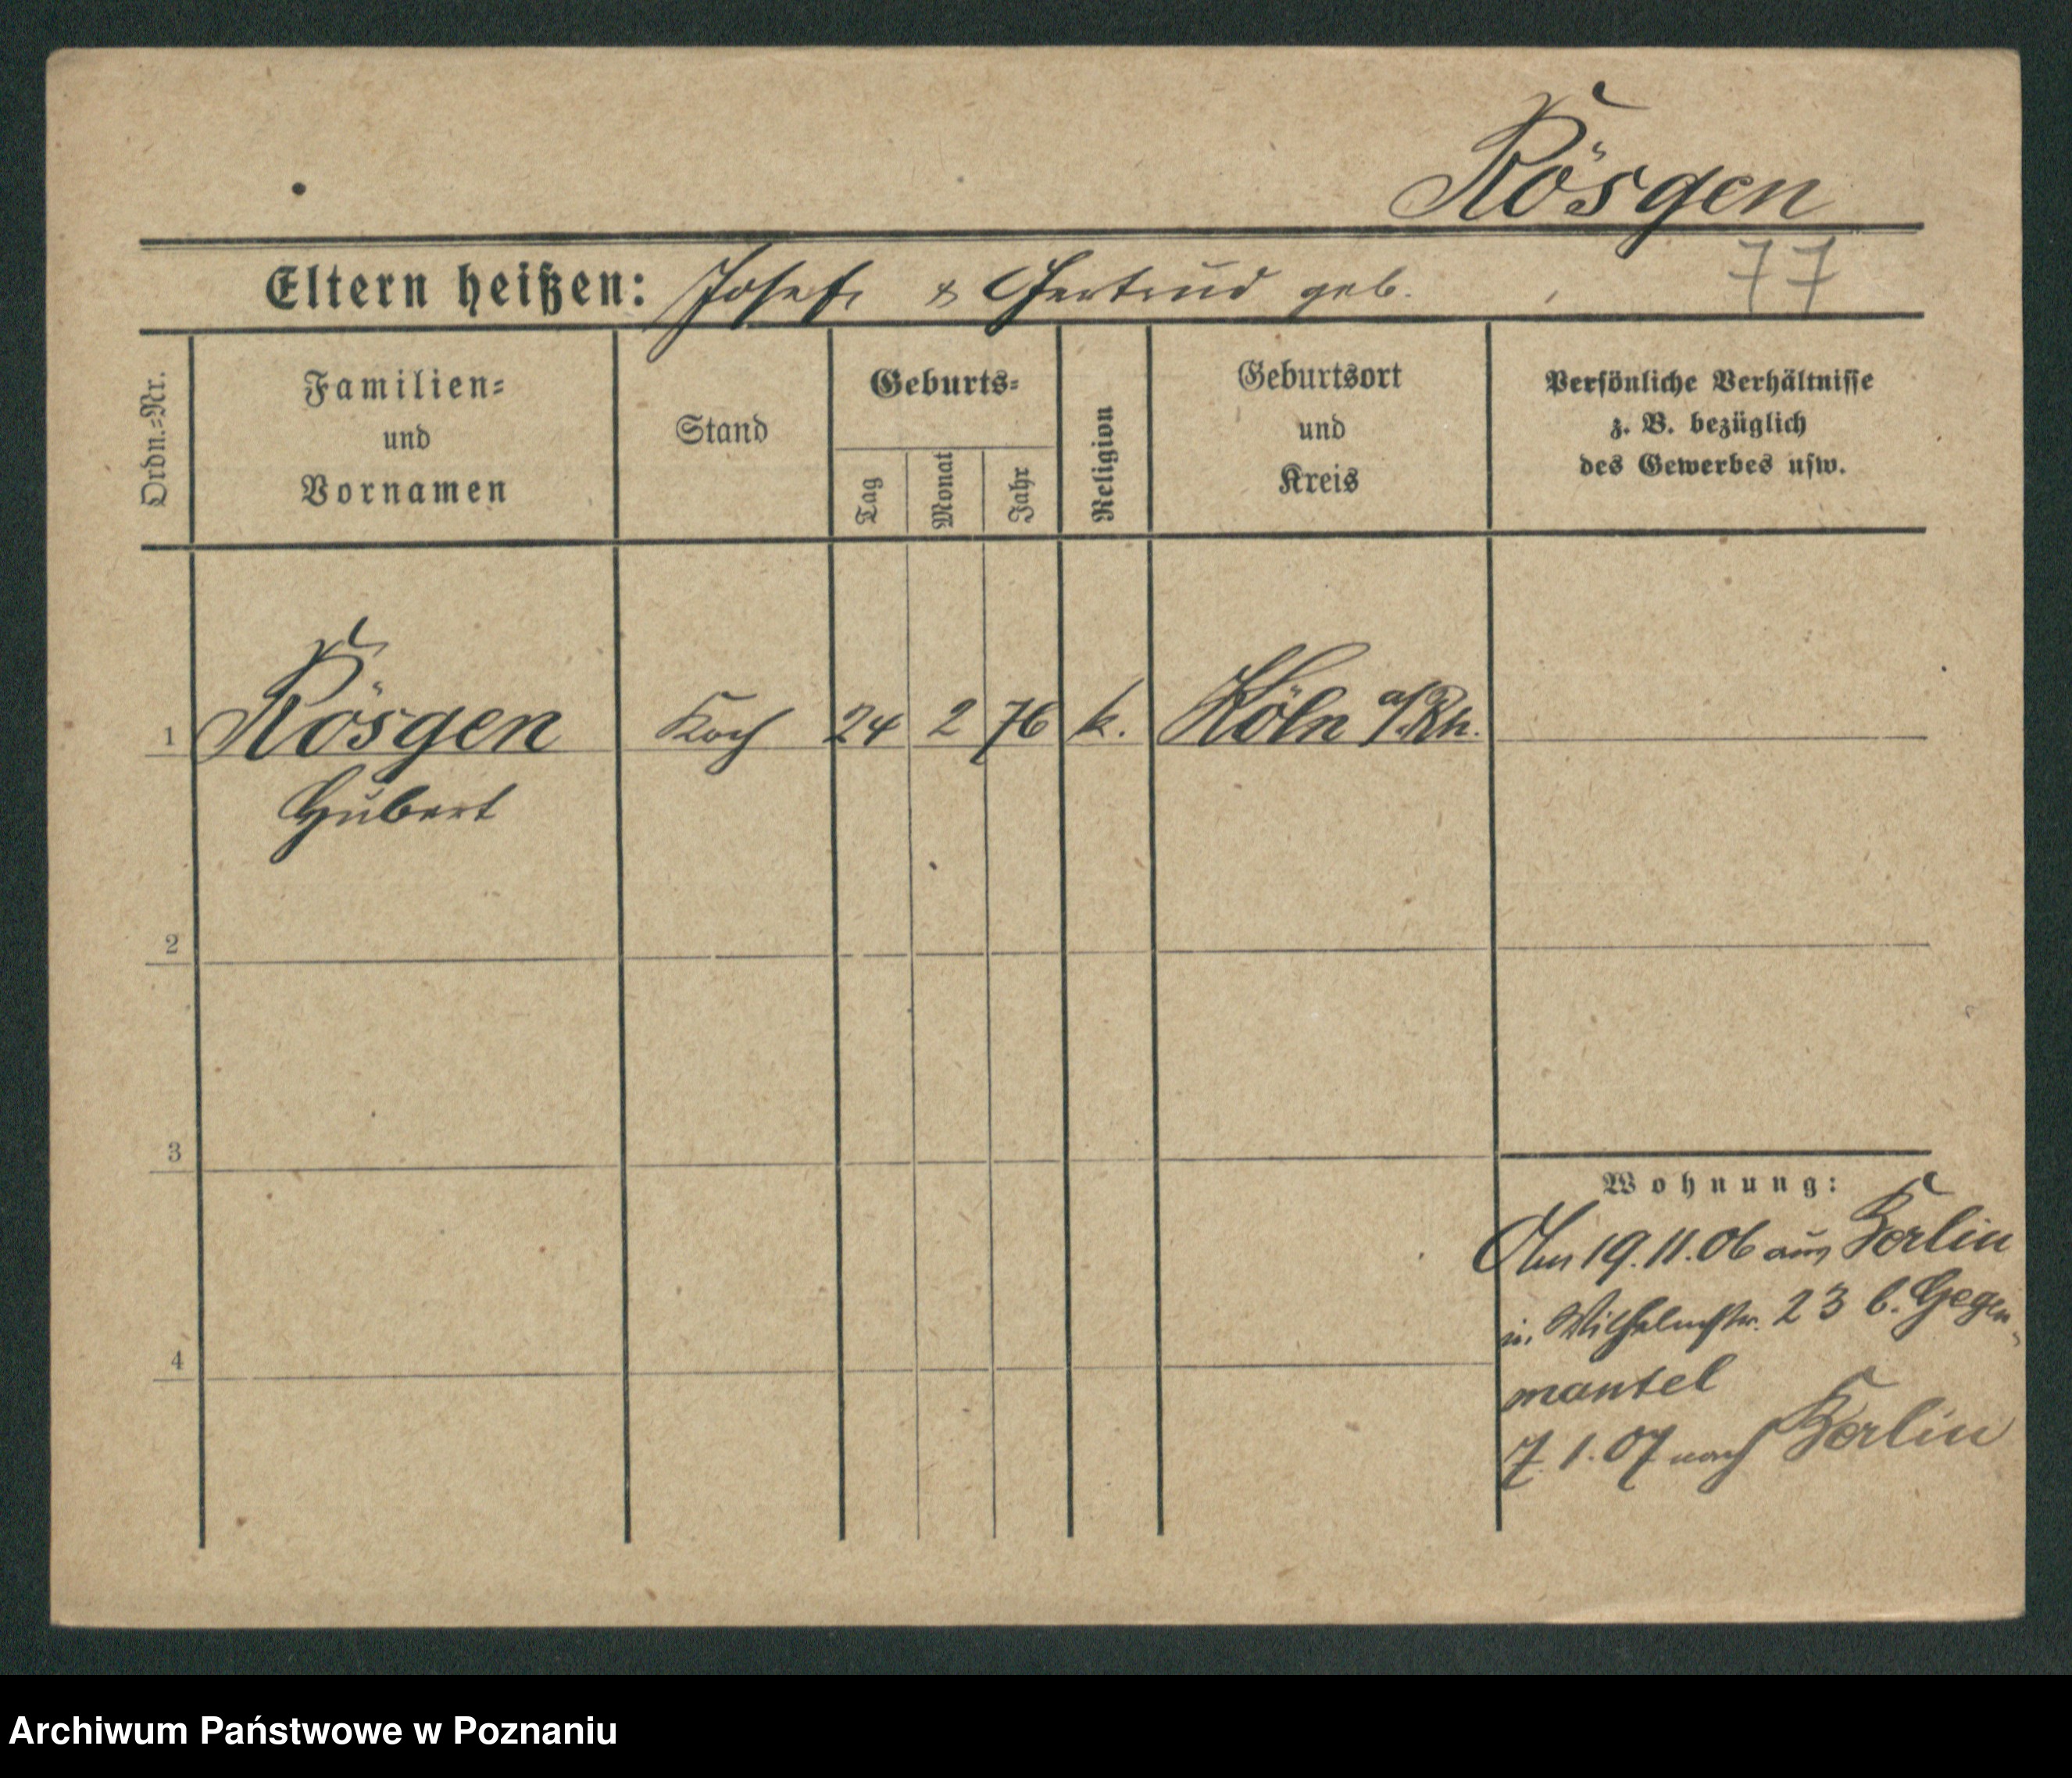 Rösgen
Eltern heißen: Josef & Gertrud geb.
77
Ordn.=Nr.
Familien=
und
Vornamen
Stand
Geburts=
Tag
Monat
Jahr
Religion
Geburtsort
und
Kreis
Persönliche Verhältnisse
z. B. bezüglich
des Gewerbes usw.
1 Rösgen Koch 24 2 76 k. Köln a/Rh.
Hubert
2
3
4
Wohnung:
Am 19.11.06 aus Berlin
n. Wilhelmstr. 23 b. Gegen
mantel
7.1.07 nach Berlin
Archiwum Państwowe w Poznaniu